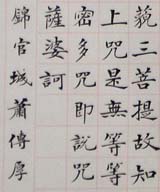 藐三菩提故知
上咒是無等等
密多咒即說咒
薩婆訶
錦官城蕭傳厚